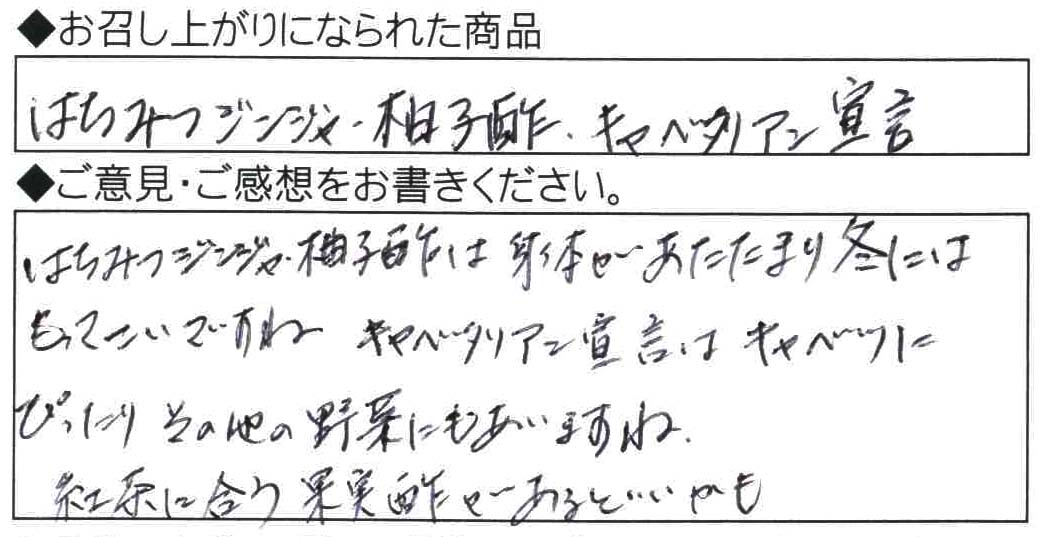 ◆お召し上がりになられた商品
はちみつジンジャー柚子酢、キャベタリアン宣言
◆ご意見・ご感想をお書きください。
はちみつジンジャー柚子酢は身体があたたまり冬には
もってこいですね キャベタリアン宣言は キャベツに
ぴったり その他の野菜にもあいますね.
紅茶に合う果実酢があるといいかも